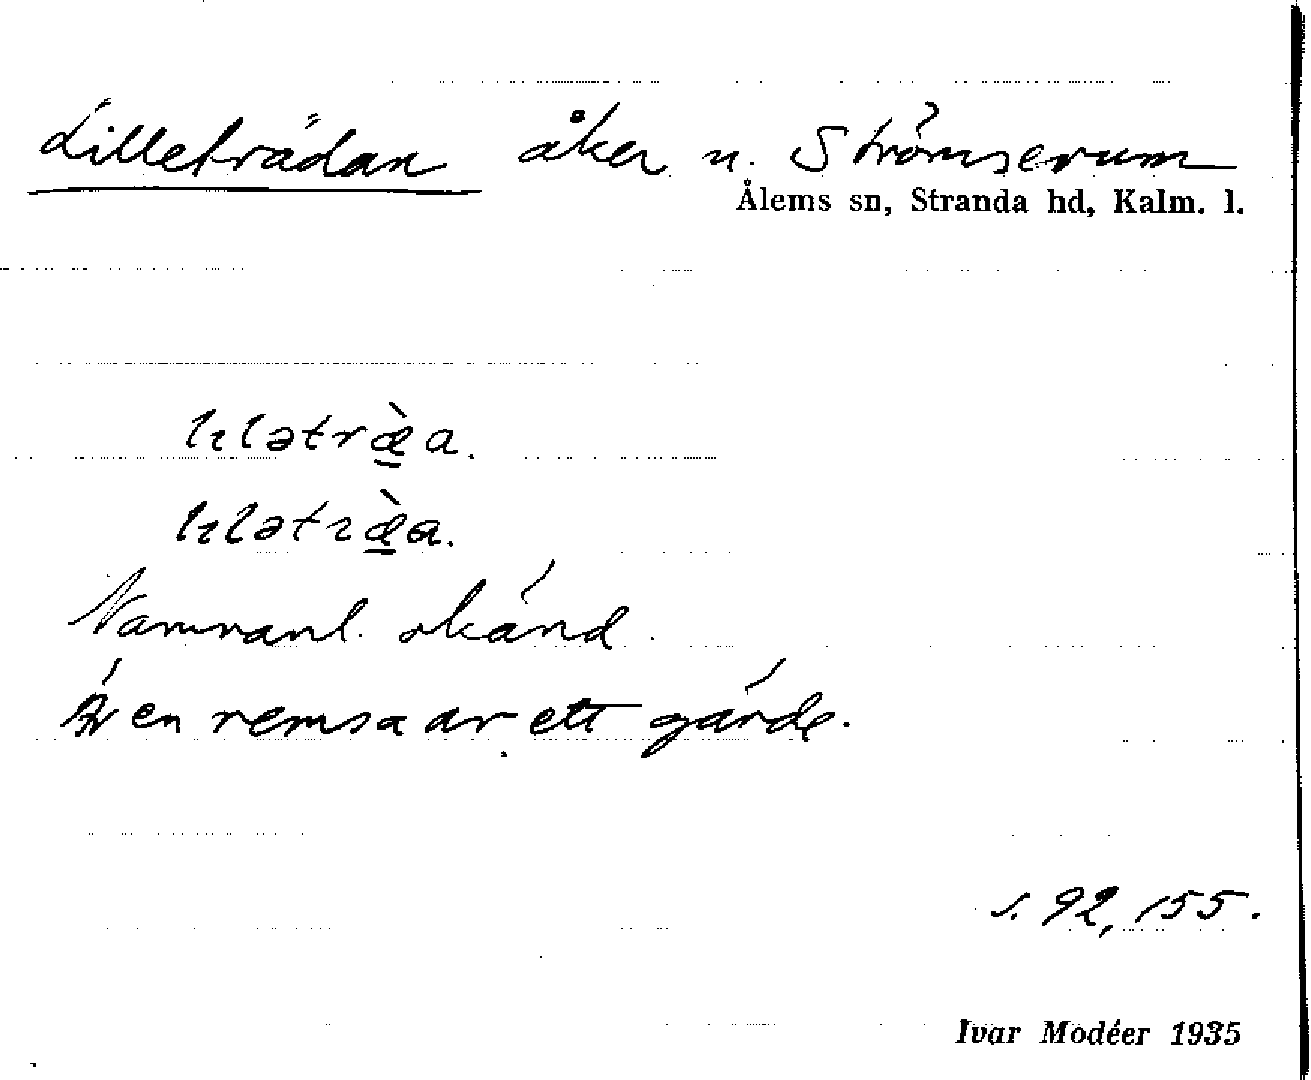 Lilleträdan åker n. Strömserum
Ålems sn, Stranda hd, Kalm. l.
lɩlətræ̀a.
lɩlətræ̀a.
Namnanl. okänd.
Är en remsa av ett gärde.
s. 92, 155.
Ivar Modéer 1935